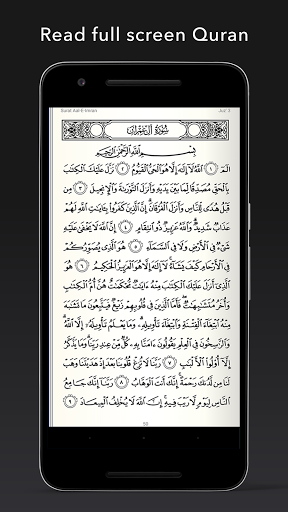 Read full screen Quran
Surat Aal-E-Imran Juz' 3
سُورَةُ آلِ عِمْرَانَ
بِسْمِ اللَّهِ الرَّحْمَٰنِ الرَّحِيمِ
الٓمٓ ١ ٱللَّهُ لَآ إِلَٰهَ إِلَّا هُوَ ٱلْحَىُّ ٱلْقَيُّومُ ٢ نَزَّلَ عَلَيْكَ ٱلْكِتَٰبَ
بِٱلْحَقِّ مُصَدِّقًا لِّمَا بَيْنَ يَدَيْهِ وَأَنزَلَ ٱلتَّوْرَىٰةَ وَٱلْإِنجِيلَ ٣ مِن
قَبْلُ هُدًى لِّلنَّاسِ وَأَنزَلَ ٱلْفُرْقَانَ إِنَّ ٱلَّذِينَ كَفَرُوا۟ بِـَٔايَٰتِ ٱللَّهِ لَهُمْ
عَذَابٌ شَدِيدٌ وَٱللَّهُ عَزِيزٌ ذُو ٱنتِقَامٍ ٤ إِنَّ ٱللَّهَ لَا يَخْفَىٰ عَلَيْهِ
شَىْءٌ فِى ٱلْأَرْضِ وَلَا فِى ٱلسَّمَآءِ ٥ هُوَ ٱلَّذِى يُصَوِّرُكُمْ
فِى ٱلْأَرْحَامِ كَيْفَ يَشَآءُ لَآ إِلَٰهَ إِلَّا هُوَ ٱلْعَزِيزُ ٱلْحَكِيمُ ٦ هُوَ
ٱلَّذِىٓ أَنزَلَ عَلَيْكَ ٱلْكِتَٰبَ مِنْهُ ءَايَٰتٌ مُّحْكَمَٰتٌ هُنَّ أُمُّ ٱلْكِتَٰبِ
وَأُخَرُ مُتَشَٰبِهَٰتٌ فَأَمَّا ٱلَّذِينَ فِى قُلُوبِهِمْ زَيْغٌ فَيَتَّبِعُونَ مَا تَشَٰبَهَ
مِنْهُ ٱبْتِغَآءَ ٱلْفِتْنَةِ وَٱبْتِغَآءَ تَأْوِيلِهِۦ وَمَا يَعْلَمُ تَأْوِيلَهُۥٓ إِلَّا ٱللَّهُ
وَٱلرَّٰسِخُونَ فِى ٱلْعِلْمِ يَقُولُونَ ءَامَنَّا بِهِۦ كُلٌّ مِّنْ عِندِ رَبِّنَا وَمَا يَذَّكَّرُ
إِلَّآ أُو۟لُوا۟ ٱلْأَلْبَٰبِ ٧ رَبَّنَا لَا تُزِغْ قُلُوبَنَا بَعْدَ إِذْ هَدَيْتَنَا وَهَبْ
لَنَا مِن لَّدُنكَ رَحْمَةً إِنَّكَ أَنتَ ٱلْوَهَّابُ ٨ رَبَّنَآ إِنَّكَ جَامِعُ
ٱلنَّاسِ لِيَوْمٍ لَّا رَيْبَ فِيهِ إِنَّ ٱللَّهَ لَا يُخْلِفُ ٱلْمِيعَادَ ٩
50